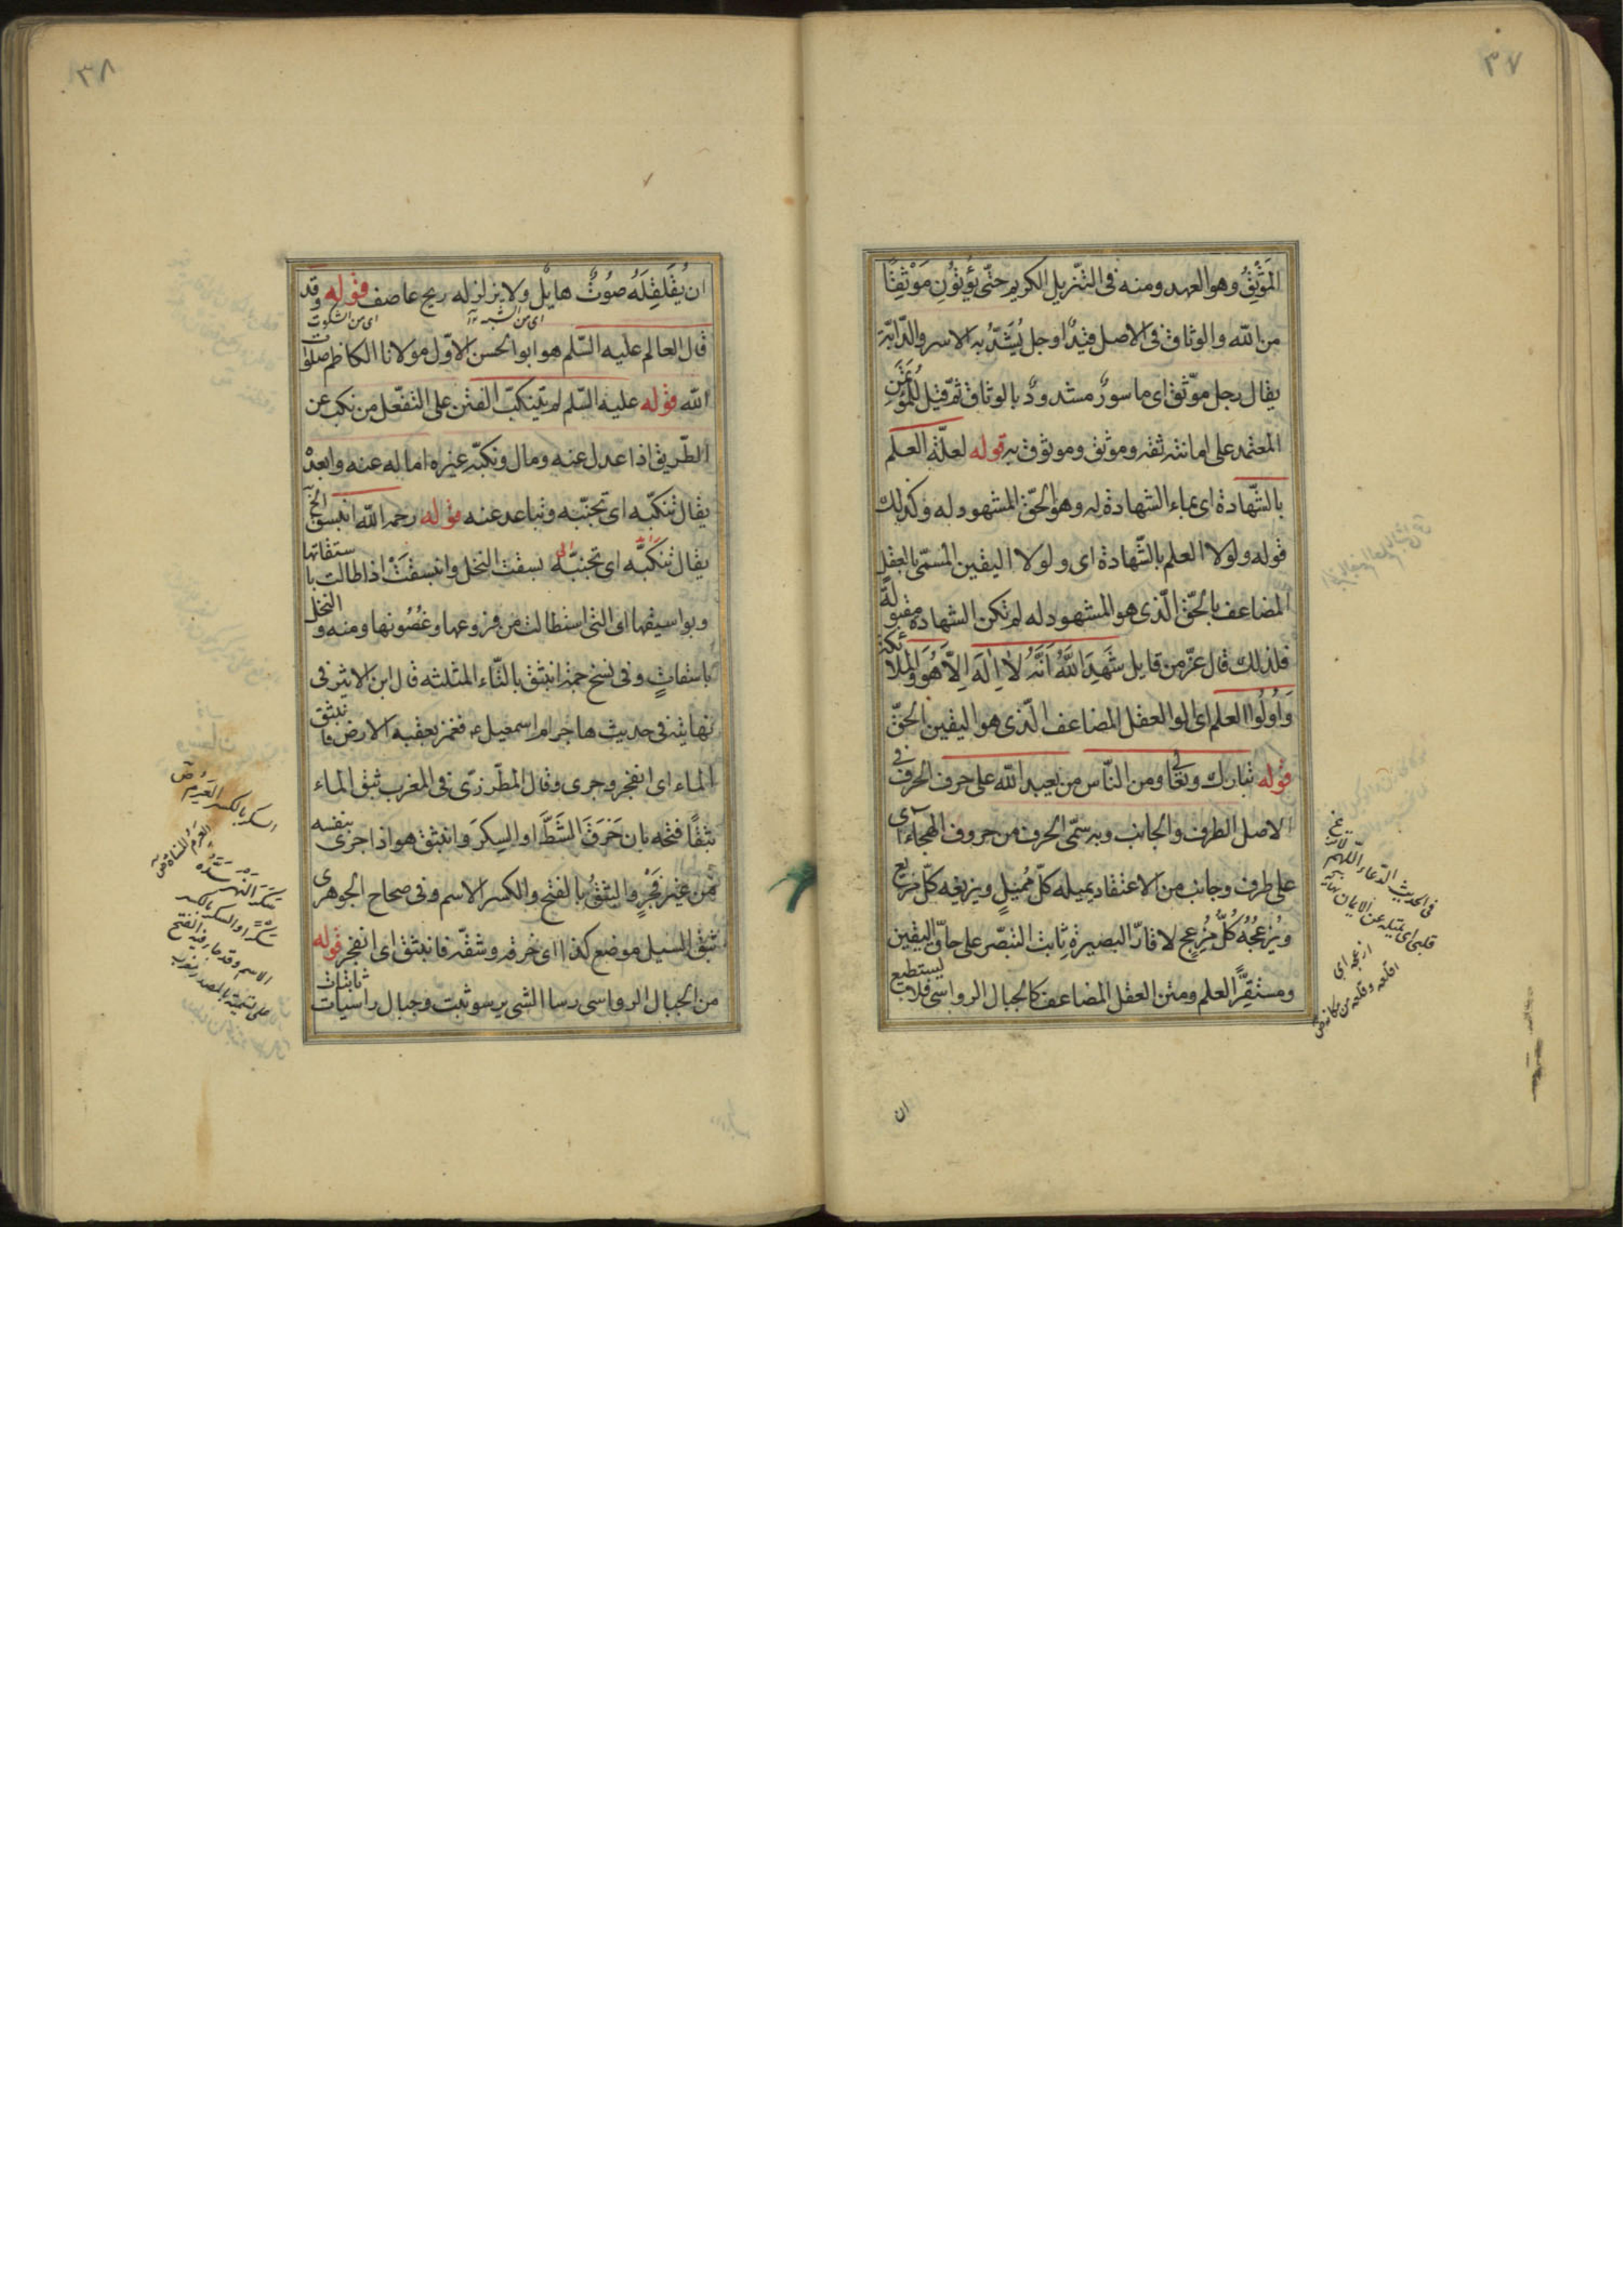 ٣٧
الموثق وهو العهد ومنه فى التنزيل الكريم حتّى يؤتون مَوْثِقًا
من الله والوثاق فى الاصل قيد او حبل يُشَدّ به الاسير والدّابّة
يقال رجل موثق اى ماسورٌ مشدودٌ بالوثاق ثم قيل للمؤتمن
المعتمد على امانته ثقة وموثق وموثوق به قوله لعلّة العلم
بالشّهادة اى بماء الشهادة له وهو الحقّ المشهود له وكذلك
قوله ولولا العلم بالشّهادة اى ولولا اليقين المسمّى بالعقل
المضاعف بالحقّ الّذى هو المشهود له لم تكن الشهادة مقبولة
فلذلك قال عزّ من قايل شَهِدَ اللَّهُ اَنَّهُ لاَ اِلَهَ اِلاَّ هُوَ وَالملائكة
وَاُولُوا العلم اى اولوا العقل المضاعف الّذى هو اليقين الحقّ
قوله تبارك وتعالى ومن النّاس من يعبد الله على حرف الحرف فى
الاصل الطرف والجانب وبه سمّى الحرف من حروف الهجاء اى
على طرف وجانب من الاعتقاد يميله كلّ مُميلٍ ويزيغه كلّ مزيغ
ويُزعجُهُ كُلُّ مُزعِجٍ لا قارّ البصيرة ثابت التبصّر على حاقّ اليقين
ومستقرّ العلم ومتن العقل المضاعف كالجبال الرواسى فلا يستطيع
ان
فى الحديث الدعاء اللّهمّ لا تزغ
قلبى اى لا تمله عن الايمان
ازعجه اى
اقلعه وقلعه من مكانه
٣٨
ان يُقَلقِلَهُ صَوْتٌ هايلٌ ولا يزلزله ريح عاصف قوله وقد
اى من الشبهة اى من الشكوك
قال العالم عليه السّلم هو ابو الحسن الاوّل مولانا الكاظم صلوات
الله قوله عليه السّلم لم يتنكب الفتن على التفعّل من نكب عن
الطّريق اذا عدل عنه ومال ونكبه غيره اماله عنه وابعده
يقال تنكّبه اى تجنّبه وتباعد عنه قوله رحمه الله انبسق الخ
يقال تنكّبه اى تجنبّه بسقت النخل وانبسقت اذا طالت باسقاتها
وبواسيقها اى التى استطالت من فروعها وغُصُونها ومنه والنخل
باسقاتٍ وفى نسخ جمة انبثق بالثّاء المثلثه قال ابن الاثير فى
نهايته فى حديث هاجر ام اسمعيل ع فغمز بعقبه الارض فانبثق
الماء اى انفجر وجرى وقال المطرّزىّ فى المغرب بثق الماء
بثقًا فتحه بان خَرَقَ الشَطَّ او السِكرَ وانبثق هو اذا جرى بنفسه
من غير فَجْرٍ والبثقُ بالفتح والكسر الاسم وفى صحاح الجوهرى
بثق السيل موضع كذا اى خرقه وشقّه فانبثق اى انفجر قوله
من الجبال الرواسى رسا الشى يرسو ثبت وجبال راسيات ثابتات
السكر بالكسر العَرِم
العَرِمُ المُسَنّاة
سَكَرَ النَهْرَ سَدّهُ
سَكْرًا والسكر بالكسر
الاسم وقد جاء فيه الفتح
على تسمية بالمصدر مغرب